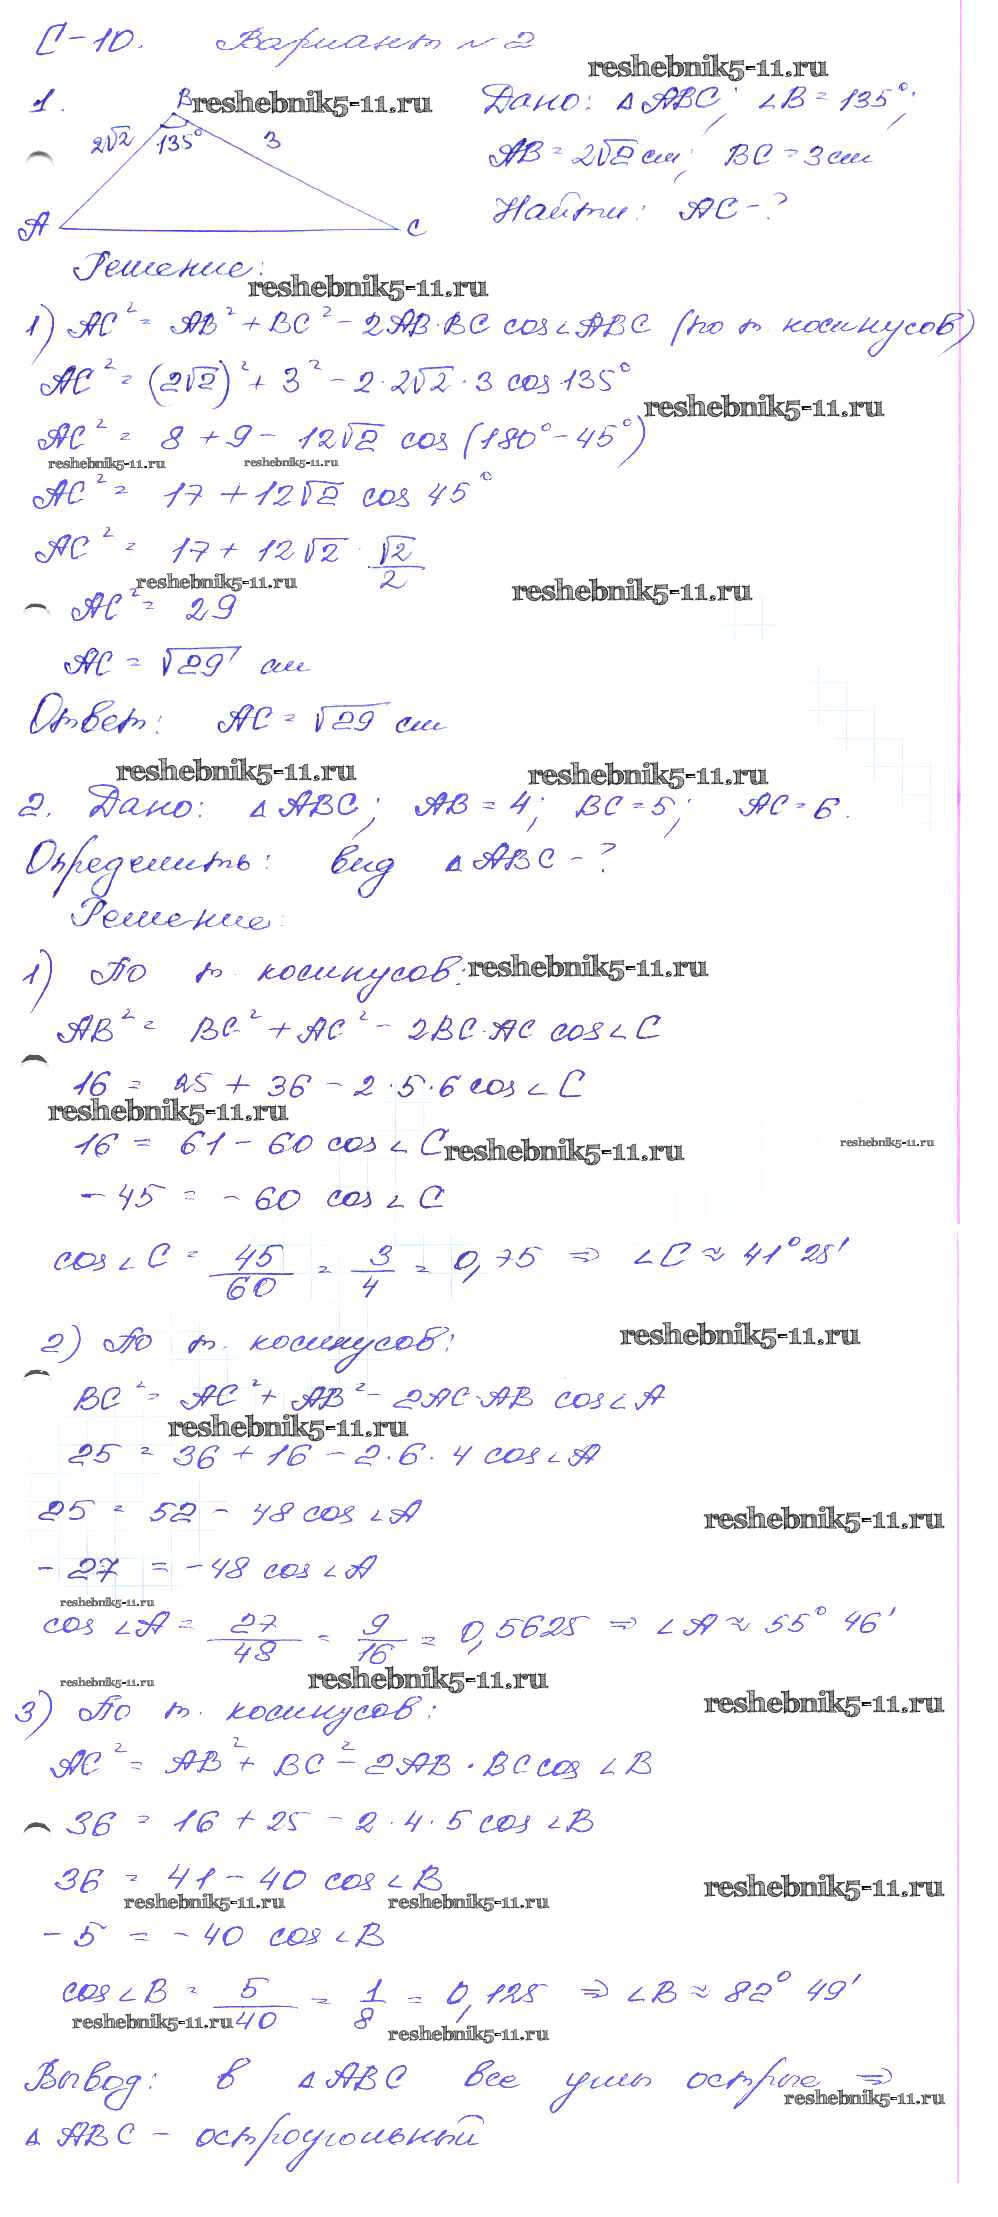 С-10. Вариант №2
reshebnik5-11.ru
1. B reshebnik5-11.ru Дано: △ABC; ∠B=135°;
2√2 135° 3 AB=2√2 см; BC=3 см
A C Найти: AC-?
Решение:
reshebnik5-11.ru
1) AC²= AB²+BC²-2AB·BC cos∠ABC (по т. косинусов)
AC²=(2√2)²+3²-2·2√2·3 cos 135°
reshebnik5-11.ru
AC²= 8+9-12√2 cos(180°-45°)
reshebnik5-11.ru reshebnik5-11.ru
AC²= 17+12√2 cos 45°
AC²= 17+12√2·√2/2
reshebnik5-11.ru reshebnik5-11.ru
AC²= 29
AC=√29 см
Ответ: AC=√29 см
reshebnik5-11.ru reshebnik5-11.ru
2. Дано: △ABC; AB=4; BC=5; AC=6.
Определить: вид △ABC-?
Решение:
1) По т. косинусов: reshebnik5-11.ru
AB²= BC²+AC²-2BC·AC cos∠C
16 = 25+36-2·5·6 cos∠C
reshebnik5-11.ru
16 = 61-60 cos∠C reshebnik5-11.ru reshebnik5-11.ru
-45 = -60 cos∠C
cos∠C = 45/60 = 3/4 = 0,75 ⇒ ∠C≈41°25'
2) По т. косинусов: reshebnik5-11.ru
BC²= AC²+AB²-2AC·AB cos∠A
reshebnik5-11.ru
25 = 36+16-2·6·4 cos∠A
25 = 52-48 cos∠A reshebnik5-11.ru
-27 = -48 cos∠A
reshebnik5-11.ru
cos∠A = 27/48 = 9/16 = 0,5625 ⇒ ∠A≈55°46'
reshebnik5-11.ru reshebnik5-11.ru
3) По т. косинусов: reshebnik5-11.ru
AC²= AB²+BC²-2AB·BC cos∠B
36 = 16+25-2·4·5 cos∠B
36 = 41-40 cos∠B reshebnik5-11.ru
reshebnik5-11.ru reshebnik5-11.ru
-5 = -40 cos∠B
cos∠B = 5/40 = 1/8 = 0,125 ⇒ ∠B≈82°49'
reshebnik5-11.ru reshebnik5-11.ru
Вывод: в △ABC все углы острые ⇒
reshebnik5-11.ru
△ABC - остроугольный